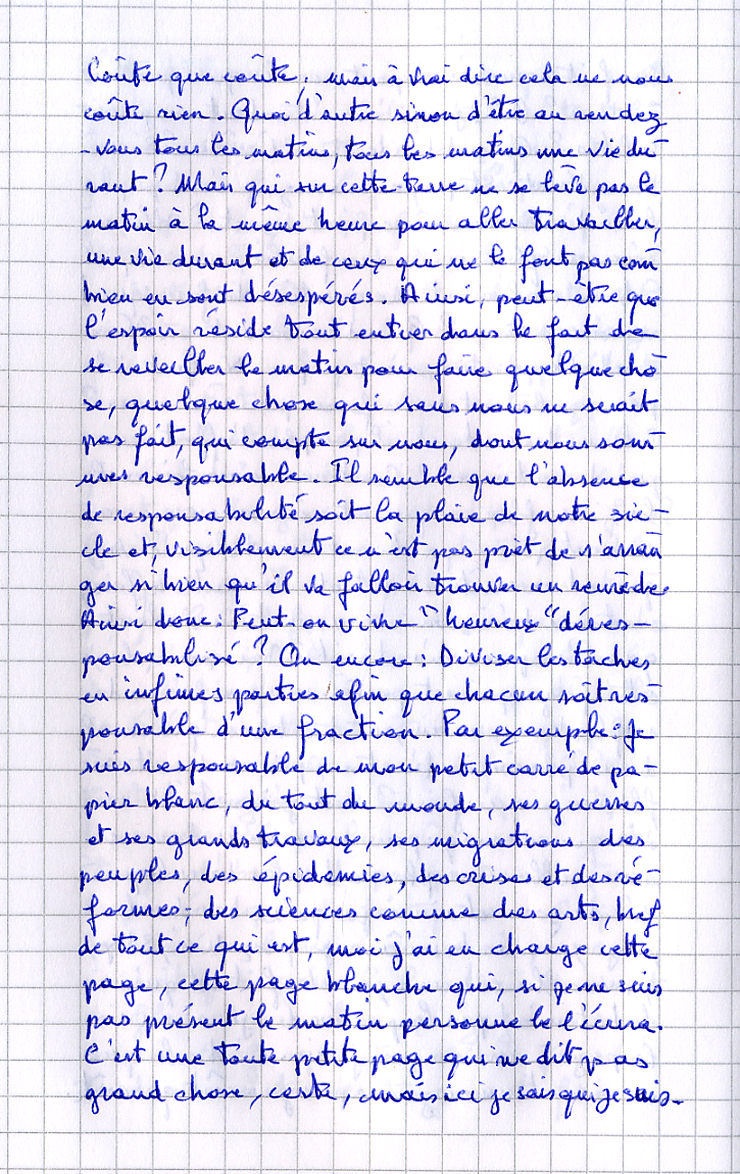 Coûte que coûte, mais à vrai dire cela ne nous
coûte rien. Quoi d'autre sinon d'être au rendez
-vous tous les matins, tous les matins une vie du-
rant ? Mais qui sur cette terre ne se lève pas le
matin à la même heure pour aller travailler,
une vie durant et de ceux qui ne le font pas com
bien en sont désespérés. Ainsi, peut-être que
l'espoir réside tout entier dans le fait de
se réveiller le matin pour faire quelque cho
se, quelque chose qui sans nous ne serait
pas fait, qui compte sur nous, dont nous som
mes responsable. Il semble que l'absence
de responsabilité soit la plaie de notre siè-
cle et, visiblement ce n'est pas prêt de s'arran
ger si bien qu'il va falloir trouver un remède.
Ainsi donc : Peut-on vivre "heureux" déres-
ponsabilisé ? Ou encore : Diviser les tâches
en infimes parties afin que chacun soit res-
ponsable d'une fraction. Par exemple : Je
suis responsable de mon petit carré de pa-
pier blanc, du tout du monde, ses guerres
et ses grands travaux, ses migrations des
peuples, des épidemies, des crises et des ré-
formes, des sciences comme des arts, bref
de tout ce qui est, moi j'ai en charge cette
page, cette page blanche qui, si je ne suis
pas présent le matin personne le l'écrira.
C'est une toute petite page qui ne dit pas
grand chose, certe, mais ici je sais qui je suis.